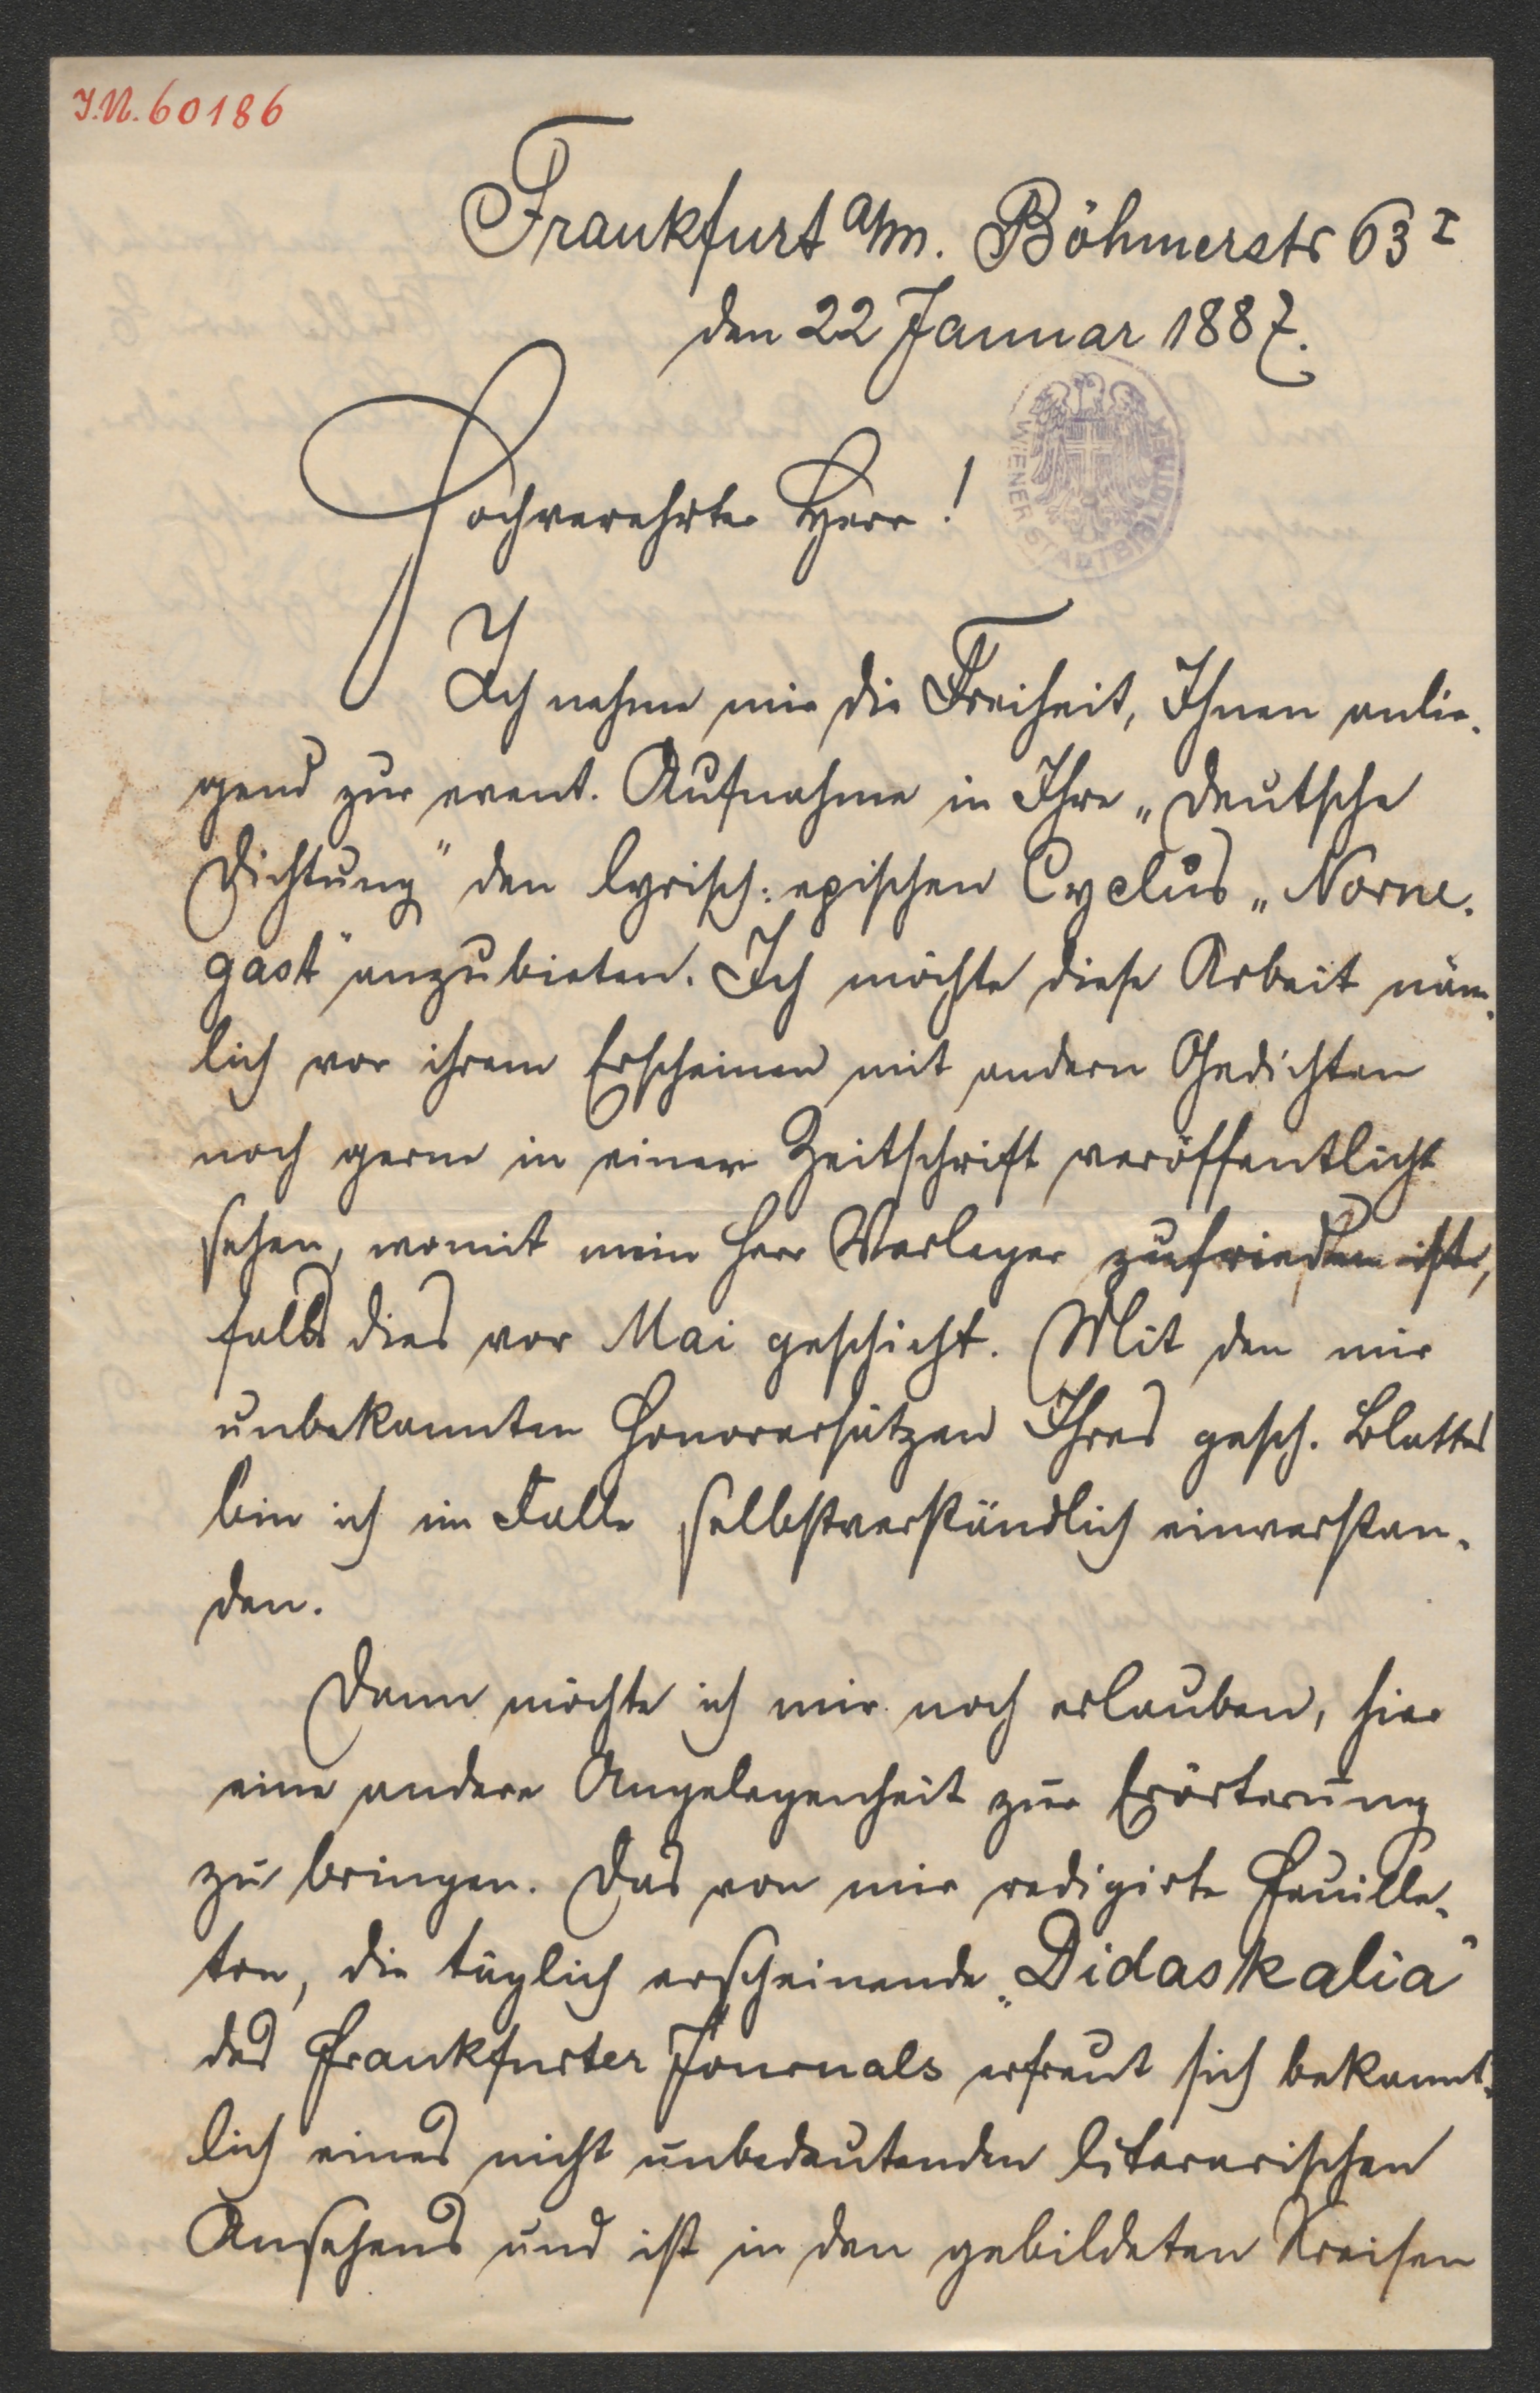 I.N. 60186
Frankfurt a/m. Böhmerstr 63 I
den 22 Januar 1887.
Hochverehrter Herr!
WIENER STADTBIBLIOTHEK
Ich nehme mir die Freiheit, Ihnen anlie-
gend zur event. Aufnahme in Ihre „Deutsche
Dichtung" den lyrisch-epischen Cyclus „Norne-
gast" anzubieten. Ich möchte diese Arbeit näm-
lich vor ihrem Erscheinen mit andern Gedichten
noch gerne in einer Zeitschrift veröffentlicht
sehen, womit mein Herr Verleger zufrieden ist,
falls dies vor Mai geschieht. Mit den mir
unbekannten Honorarsätzen Ihres gesch. Blattes
bin ich im Falle selbstverständlich einverstan-
den.
Dann möchte ich mir noch erlauben, hier
eine andere Angelegenheit zur Erörterung
zu bringen. Das von mir redigirte Feuille-
ton, die täglich erscheinende „Didaskalia"
des Frankfurter Journals erfreut sich bekannt-
lich eines nicht unbedeutenden literarischen
Ansehens und ist in den gebildeten Kreisen